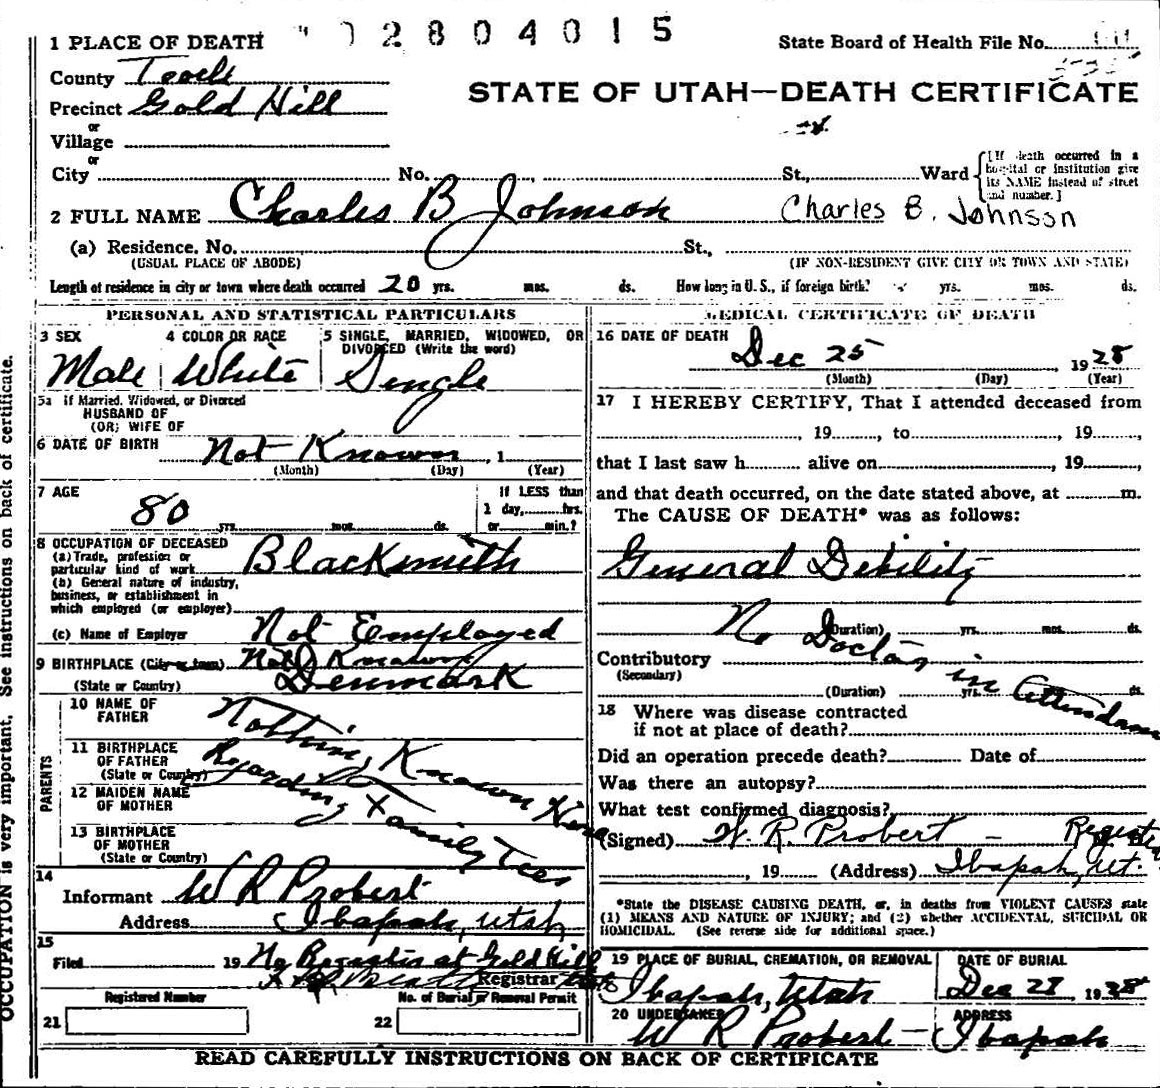 2804015
1 PLACE OF DEATH
State Board of Health File No.
County Tooele
Precinct Gold Hill
STATE OF UTAH—DEATH CERTIFICATE
or
Village
or
City No. , St., Ward
[If death occurred in a hospital or institution give its NAME instead of street and number.]
2 FULL NAME Charles B Johnson Charles B. Johnson
(a) Residence. No. St.,
(USUAL PLACE OF ABODE) (IF NON-RESIDENT GIVE CITY OR TOWN AND STATE)
Length of residence in city or town where death occurred 20 yrs. mos. ds. How long in U. S., if foreign birth? yrs. mos. ds.
PERSONAL AND STATISTICAL PARTICULARS
3 SEX 4 COLOR OR RACE 5 SINGLE, MARRIED, WIDOWED, OR
DIVORCED (Write the word)
Male White Single
5a If Married, Widowed, or Divorced
HUSBAND OF
(OR) WIFE OF
6 DATE OF BIRTH Not Known , 1
(Month) (Day) (Year)
7 AGE If LESS than
1 day, hrs.
80 yrs. mos. ds. or min.?
8 OCCUPATION OF DECEASED
(a) Trade, profession or
particular kind of work Blacksmith
(b) General nature of industry,
business, or establishment in
which employed (or employer)
(c) Name of Employer Not Employed
9 BIRTHPLACE (City or town) Not Known
(State or Country) Denmark
PARENTS
10 NAME OF
FATHER
11 BIRTHPLACE
OF FATHER
(State or Country)
12 MAIDEN NAME
OF MOTHER
13 BIRTHPLACE
OF MOTHER
(State or Country)
Nothing Known Here
Regarding Family Tree
14
Informant W R Probert
Address Ibapah, Utah
15
Filed 19 No Registrar at Gold Hill
Registrar
Registered Number No. of Burial or Removal Permit
21 22
MEDICAL CERTIFICATE OF DEATH
16 DATE OF DEATH
Dec 25 1928
(Month) (Day) (Year)
17 I HEREBY CERTIFY, That I attended deceased from
, 19 , to , 19 ,
that I last saw h alive on , 19 ,
and that death occurred, on the date stated above, at m.
The CAUSE OF DEATH* was as follows:
General Debility
(Duration) yrs. mos. ds.
No Doctor in Attendance
Contributory
(Secondary)
(Duration) yrs. ds.
18 Where was disease contracted
if not at place of death?
Did an operation precede death? Date of
Was there an autopsy?
What test confirmed diagnosis?
(Signed) W. R. Probert — Registrar
, 19 (Address) Ibapah, Ut.
*State the DISEASE CAUSING DEATH, or, in deaths from VIOLENT CAUSES state
(1) MEANS AND NATURE OF INJURY; and (2) whether ACCIDENTAL, SUICIDAL OR
HOMICIDAL. (See reverse side for additional space.)
19 PLACE OF BURIAL, CREMATION, OR REMOVAL DATE OF BURIAL
Ibapah, Utah Dec 28, 1928
20 UNDERTAKER ADDRESS
W R Probert — Ibapah
READ CAREFULLY INSTRUCTIONS ON BACK OF CERTIFICATE
OCCUPATION is very important. See instructions on back of certificate.